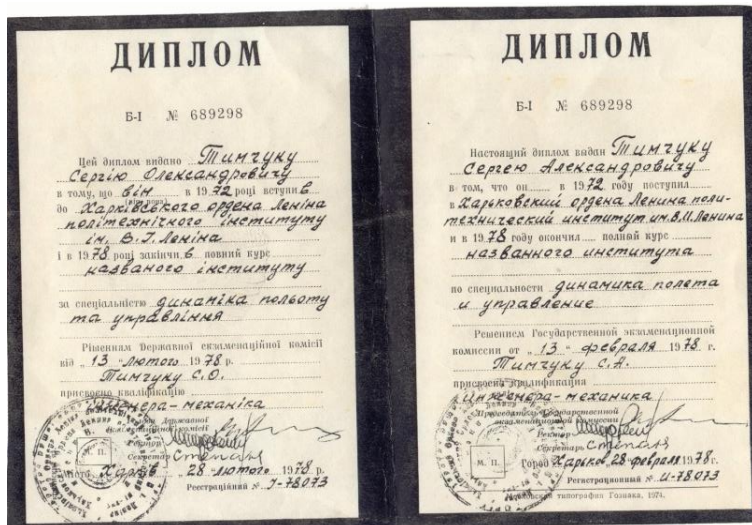 ДИПЛОМ
Б-I № 689298
Цей диплом видано Тимчуку
Сергію Олександровичу
в тому, що він в 1972 році вступив
до Харківського ордена Леніна
політехнічного інституту
ім. В.І. Леніна
і в 1978 році закінчив повний курс
названого інституту
за спеціальністю динаміка польоту
та управління
Рішенням Державної екзаменаційної комісії
від „13" лютого 1978 р.
Тимчуку С.О.
присвоєно кваліфікацію
інженера-механіка
Державної
екзаменаційної комісії
Ректор
Секретар
М. П.
Місто Харків „28" лютого 1978 р.
Реєстраційний № І-78073
ДИПЛОМ
Б-I № 689298
Настоящий диплом выдан Тимчуку
Сергею Александровичу
в том, что он в 1972 году поступил
в Харьковский ордена Ленина поли-
технический институт им. В.И. Ленина
и в 1978 году окончил полный курс
названного института
по специальности динамика полета
и управление
Решением Государственной экзаменационной
комиссии от „13" февраля 1978 г.
Тимчуку С.А.
присвоена квалификация
инженера-механика
Председатель Государственной
экзаменационной комиссии
Ректор
Секретарь
М. П.
Город Харьков 28 февраля 1978 г.
Регистрационный № И-78073
Московская типография Гознака, 1974.